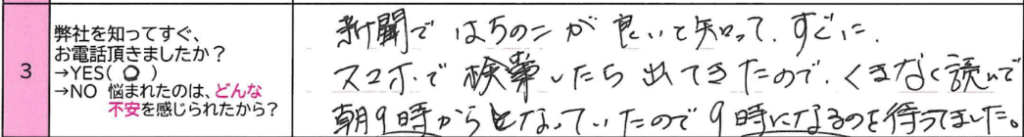 3
弊社を知ってすぐ、
お電話頂きましたか？
→YES( ○ )
→NO 悩まれたのは、どんな
不安を感じられたから？
新聞で はちのこ が 良いと知って、すぐに.
スマホで 検索したら 出てきたので、くまなく読んで
朝9時からとなっていたので9時になるのを待ってました。